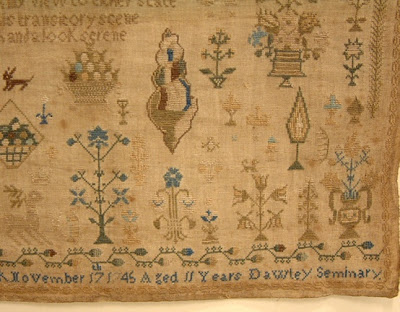 view to either state
is transitory scene
and look serene
November 17th Aged 11 Years Dawley Seminary